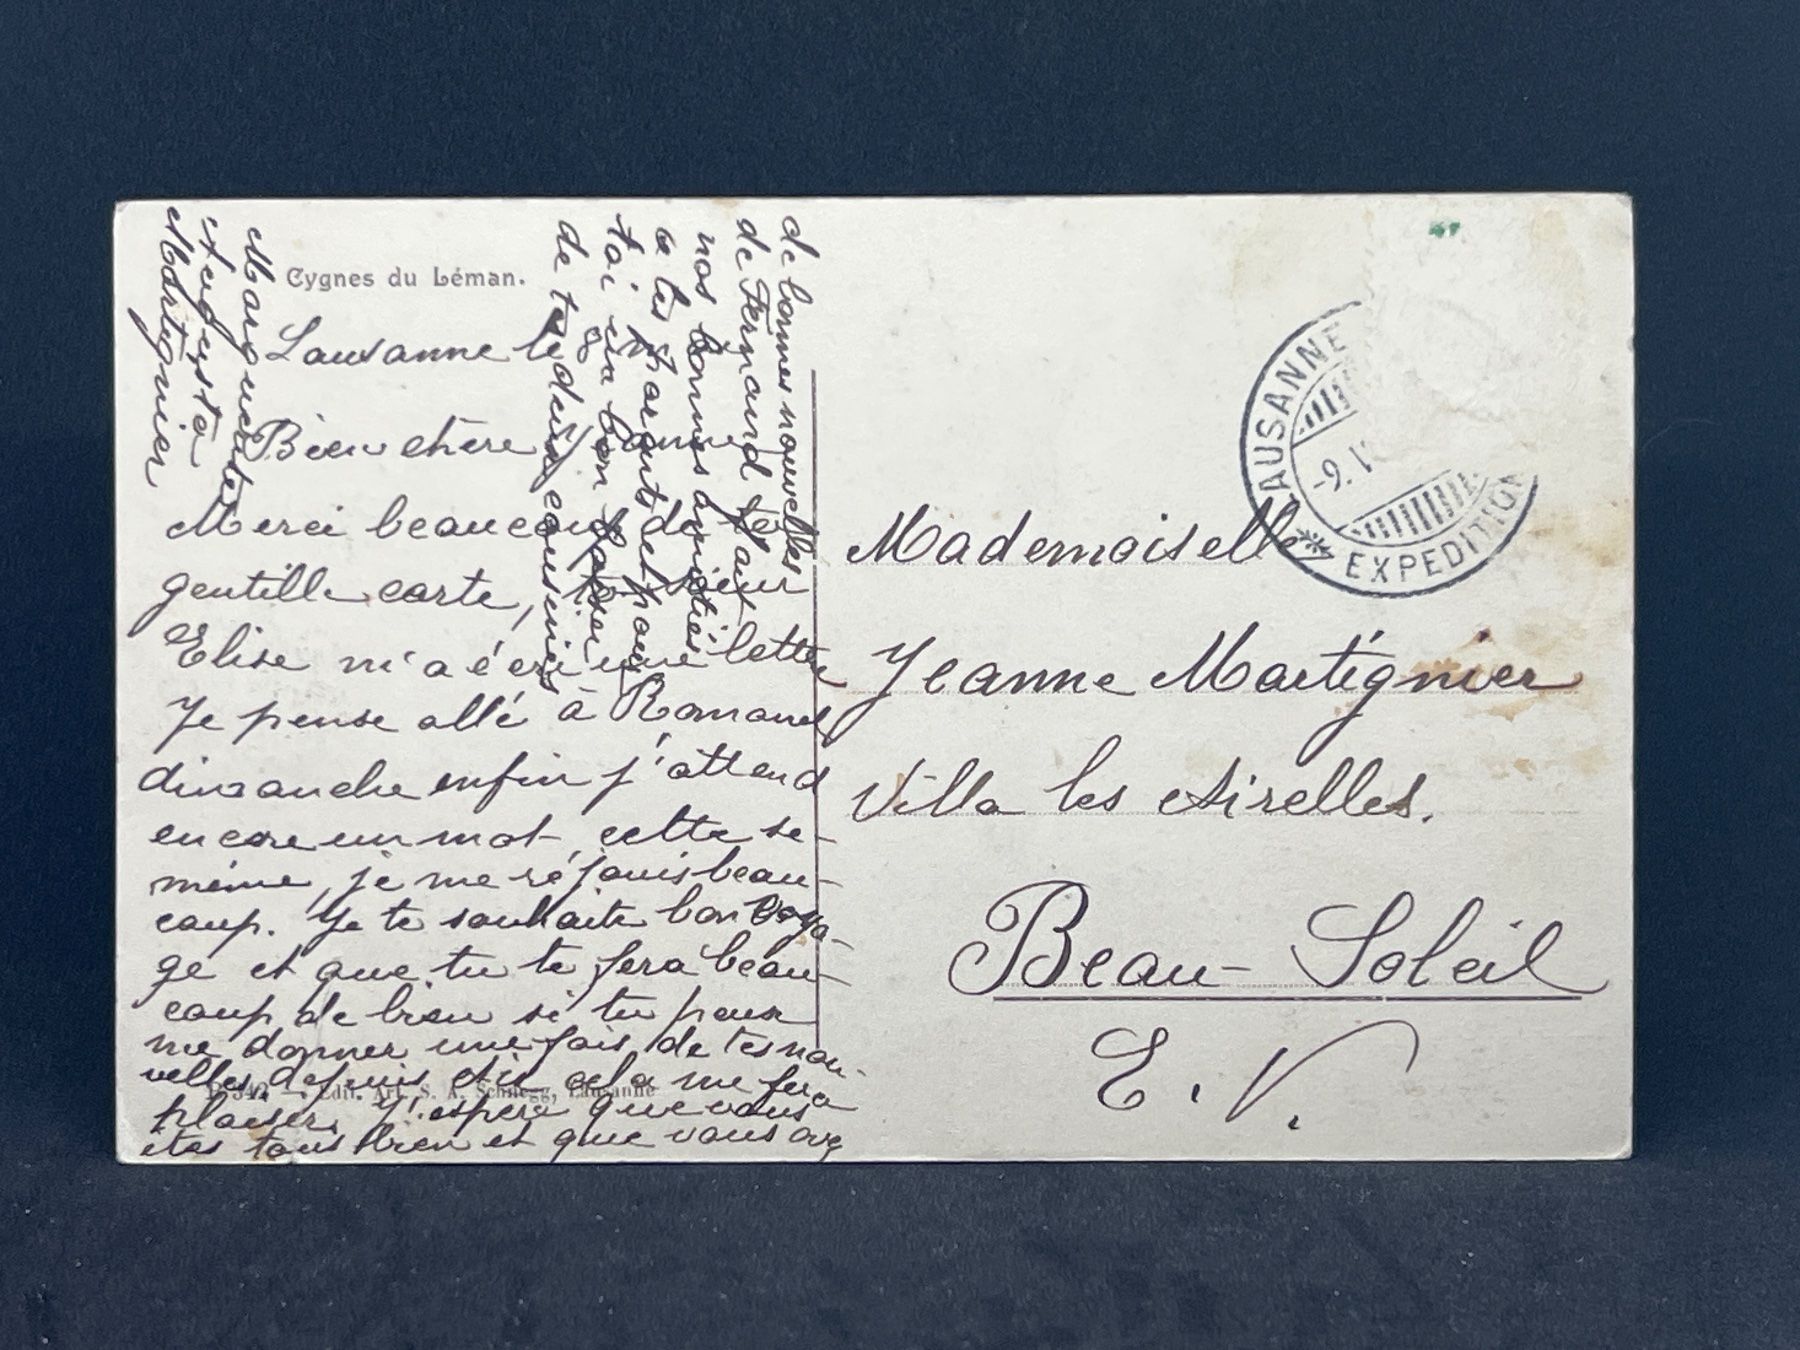 Cygnes du Léman.
Lausanne le 8
Bien chère Jeanne
Merci beaucoup de ta
gentille carte, ta sœur
Elise m'a écri une lettre
Je pense allé à Romanel
dimanche enfin j'attend
encore un mot, cette se-
maine, je me réjouis beau-
coup. Je te souhaite bon voya-
ge et que tu te fera beau-
coup de bien si tu peux
me donner une fois de tes nou-
velles depuis cela me fera
plaisir. J'espère que vous
êtes tous bien et que vous ave
de bonnes nouvelles
de Fernand
nos bonnes amitiés
a tes parents et pour
toi un bon baiser
de tes deux cousines
Marguerite
et Augusta
Martignier
342 - Edit. Art. S. A. Schnegg, Lausanne
LAUSANNE
-9.V
EXPEDITION
Mademoiselle
Jeanne Martignier
Villa les Airelles.
Beau-Soleil
E. V.